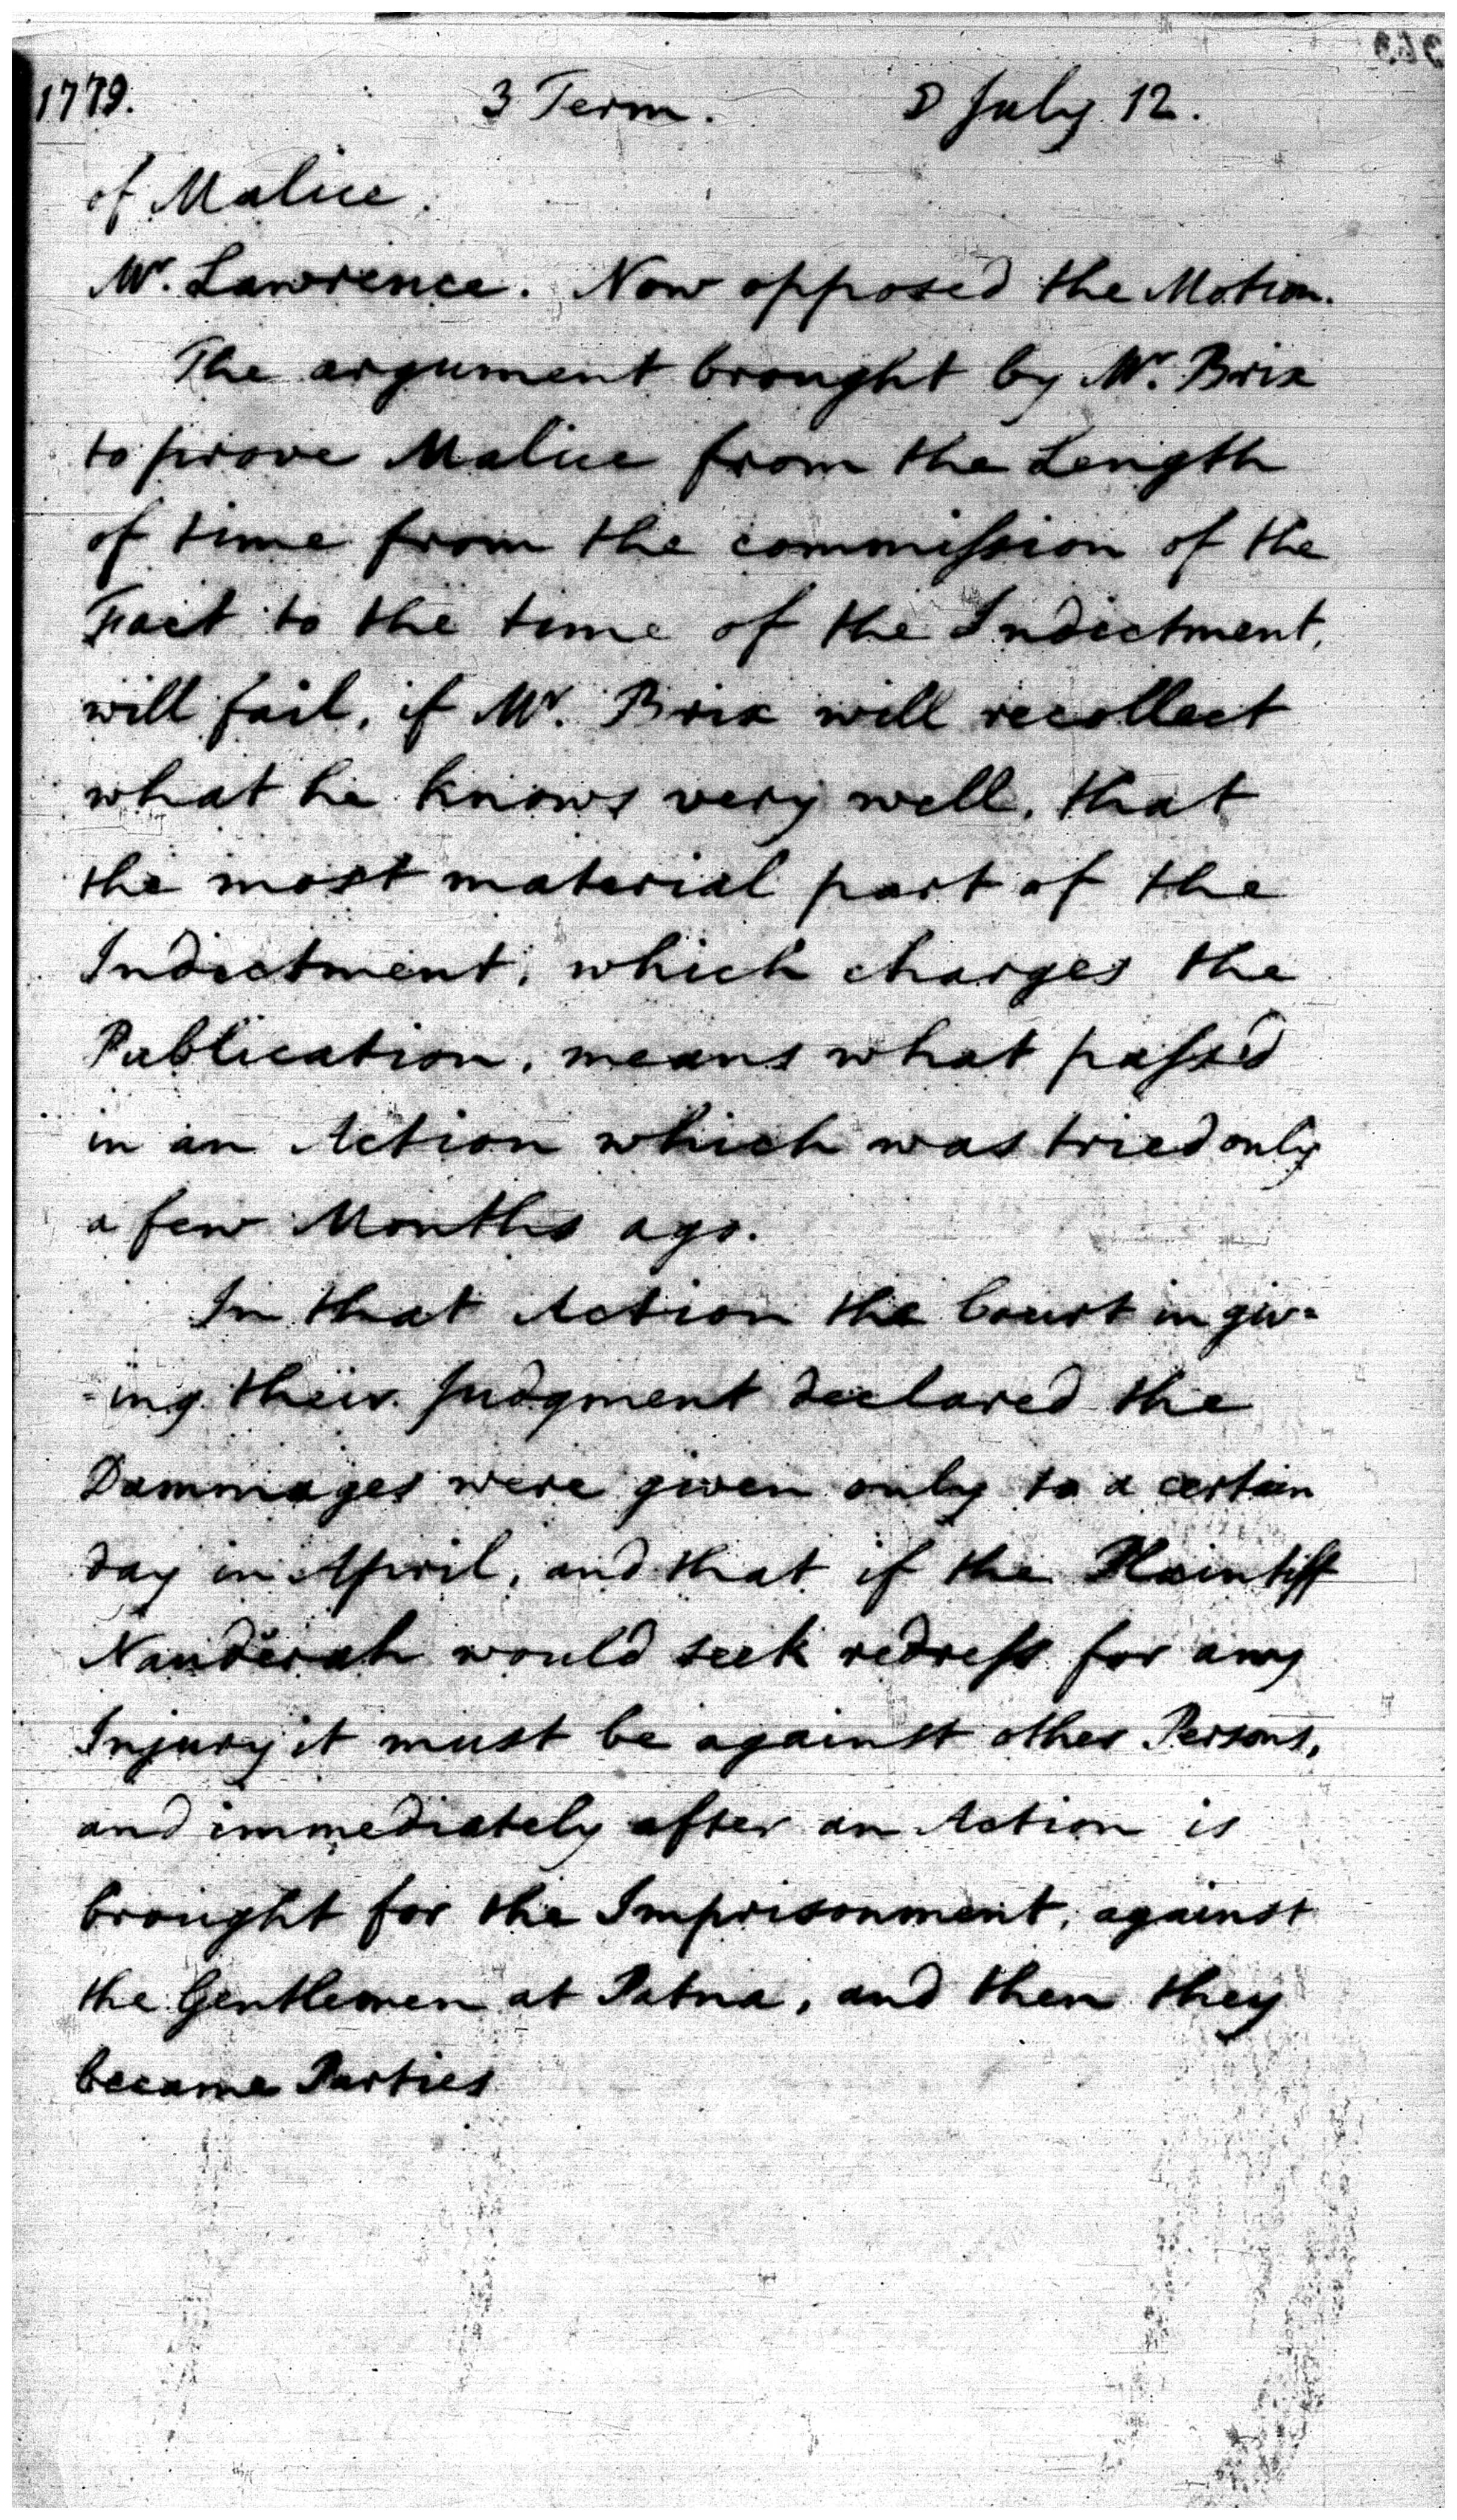 1779. 3 Term. ☽ July 12.
of Malice.
Mr. Lawrence. Now opposed the Motion.
The argument brought by Mr. Brix
to prove Malice from the Length
of time from the commission of the
Fact to the time of the Indictment,
will fail, if Mr. Brix will recollect
what he knows very well, that
the most material part of the
Indictment, which charges the
Publication, means what passed
in an Action which was tried only
a few Months ago.
In that Action the Court in giv=
=ing their Judgment declared the
Dammages were given only to a certain
day in April, and that if the Plaintiff
Nauderah would seek redress for any
Injury it must be against other Persons,
and immediately after an Action is
brought for the Imprisonment, against
the Gentlemen at Patna, and then they
became Parties